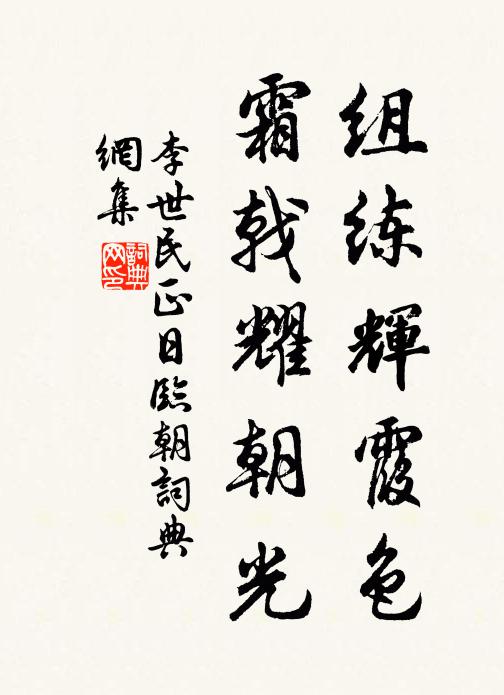 组练辉霞色
霜戟耀朝光
李世民正日臨朝詞典
網集
詞典
网印